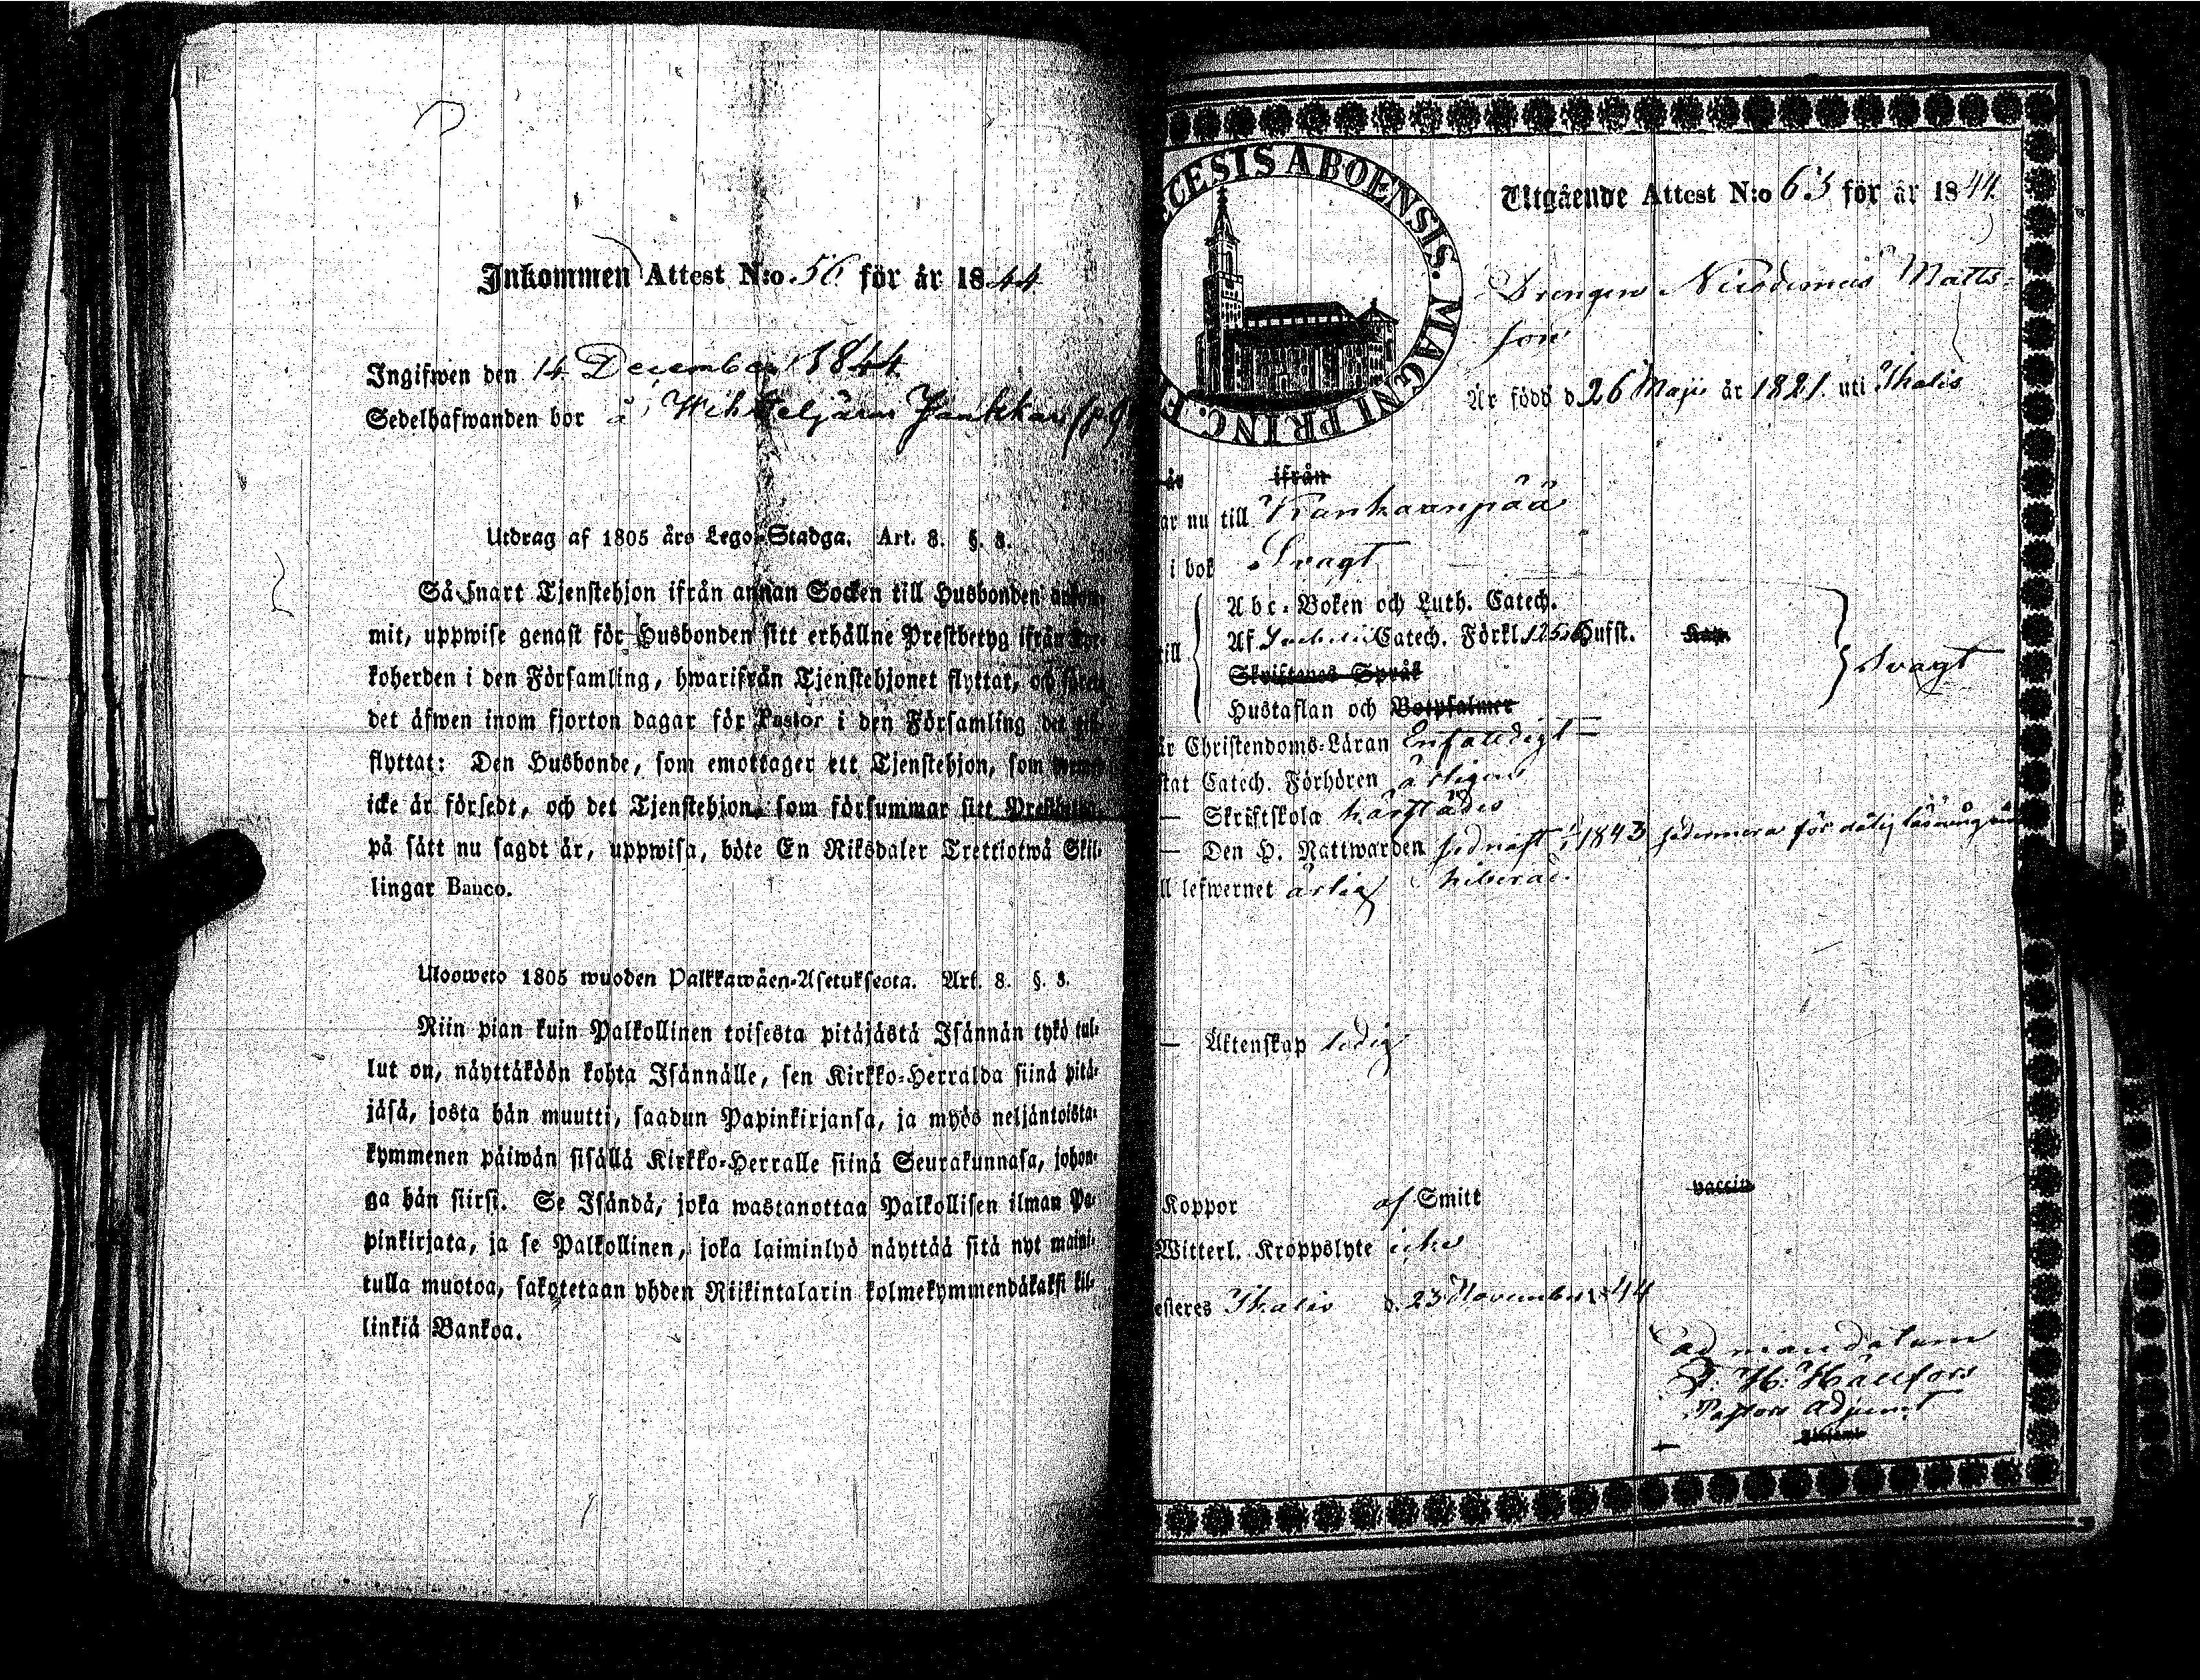 Inkommen Attest N:o 56 för år 1844
Ingifwen den 14 December 1844
Sedelhafwanden bor å Wihteljärvi
Utdrag af 1805 års Lego-Stadga. Art. 8. §. 3.
Så snart Tjenstehjon ifrån annan Socken till Husbonden
mit, uppwise genast för Husbonden sitt erhållne Prestbetyg ifrån
koherden i den Församling, hwarifrån Tjenstehjonet flyttat, och
det äfwen inom fjorton dagar för Pastor i den Församling det
flyttat: Den Husbonde, som emottager ett Tjenstehjon, som
icke är försedt, och det Tjenstehjon, som försummar sitt
på sätt nu sagdt är, uppwisa, böte En Riksdaler Trettiotwå Skil-
lingar Banco.
Ulosweto 1805 wuoden Palkkawäen-Asetuksesta. Art. 8. §. 3.
Niin pian kuin Palkollinen toisesta pitäjästä Isännän tykö tul-
lut on, näyttäköön kohta Isännälle, sen Kirkko-Herralda siinä pitä-
jäsä, josta hän muutti, saadun Papinkirjansa, ja myös neljäntoista-
kymmenen päiwän sisällä Kirkko-Herralle siinä Seurakunnasa, johon-
ga hän siirsi. Se Isändä, joka wastanottaa Palkollisen ilman Pa-
pinkirjata, ja se Palkollinen, joka laiminlyö näyttää sitä nyt maini-
tulla muotoa, sakotetaan yhden Riikintalarin kolmekymmendäkaksi kil-
linkiä Bankoa.
CESIS ABOENSIS. MAGNI PRINC. F
Utgående Attest N:o 63 för år 1844
Drengen Nicodemus Matts-
son
Är född d. 26 Maji år 1821. uti Ikalis
år ifrån
ar nu till Kankaanpää
i bok Svagt
till
Abc-Boken och Luth. Catech.
Af Catech. Förkl. Hufst. Kap.
Skriftenes Språk
Hustaflan och Botpsalmer
Svagt
är Christendoms-Läran Enfaldigt
stat Catech. Förhören årligen
— Skriftskola härstädes
— Den H. Nattwarden sednast 1843 sedermera för dålig
ll lefwernet ärlig
— Äktenskap ledig
Koppor af Smitt vaccin
Witterl. Kroppslyte icke
esteres Ikalis d. 23 November 1844
ad mandatum
Hällfors
Pastors Adjunct